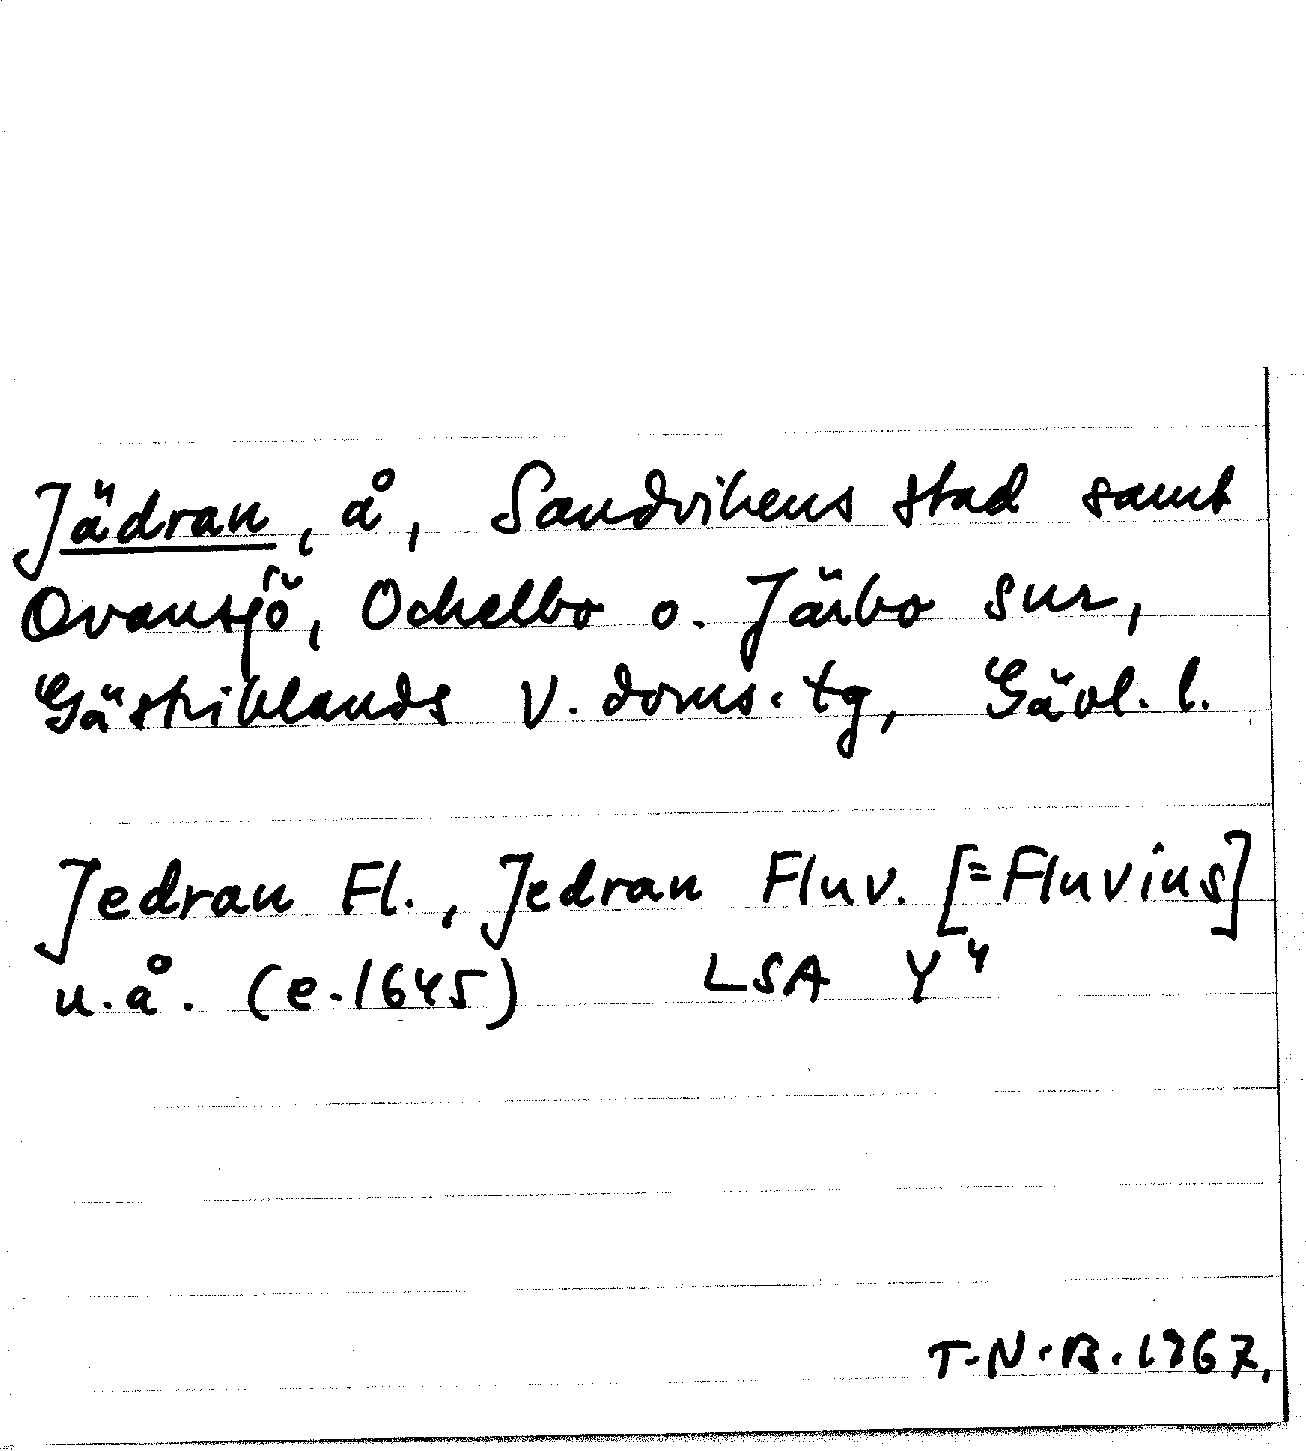 Jädran, å, Sandvikens stad samt
Ovansjö, Ockelbo o. Järbo snr,
Gästriklands V. doms. tg, Gävl. l.
Jedran Fl., Jedran Fluv. [= Fluvius]
u.å. (e. 1645) LSA Y4
T.N.B. 1967.